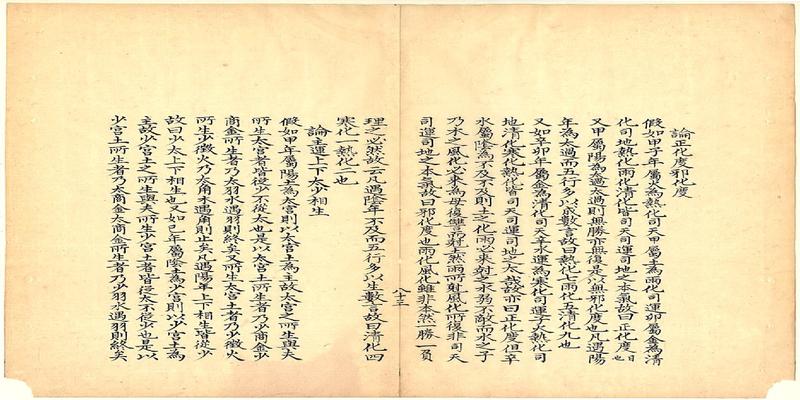 論正化度邪化度
假如甲子年屬火為熱化司天甲屬土為雨化司運卯屬金為清
化司地熱化雨化清化皆司天司運司地之本氣故曰正化度日也
又甲屬陽為太過太過則無勝亦無復是以無邪化度也凡遇陽
年為太過而五行多以成數言故曰熱化七雨化五清化九也
又如辛卯年屬金為清化司天辛水運為寒化司運子火熱化司
地清化寒化熱化皆司天司運司地之本故亦曰正化度但辛
水屬陰為不及不及則土之化雨必來尅之水弱不敵而水之子
乃木之風化必來為母復讐而尅土然雨所尅風化所復非司天
司運司地之本氣故曰邪化度也雨化風化雖非本然一勝一負
八十三
理之必然故云凡遇陰年不及而五行多以生數言故曰清化四
寒化一熱化二也
論主運上下太少相生
假如甲年屬陽土為太宮則以太宮土為主故太宮之所生與夫
所生太宮者皆從少不從太也是以太宮土所生者乃少商金少
商金所生者乃太羽水遇羽則終矣又所生太宮土者乃少徵火
所生少徵火乃太角木遇角則止矣凡遇陽年上下相生皆從少
故曰少太上下相生也又如己年屬陰土為少宮則以少宮土為
主故少宮土之所生與夫所生少宮土者皆從太不從少也是以
少宮土所生者乃太商金太商金所生者乃少羽水遇羽則終矣